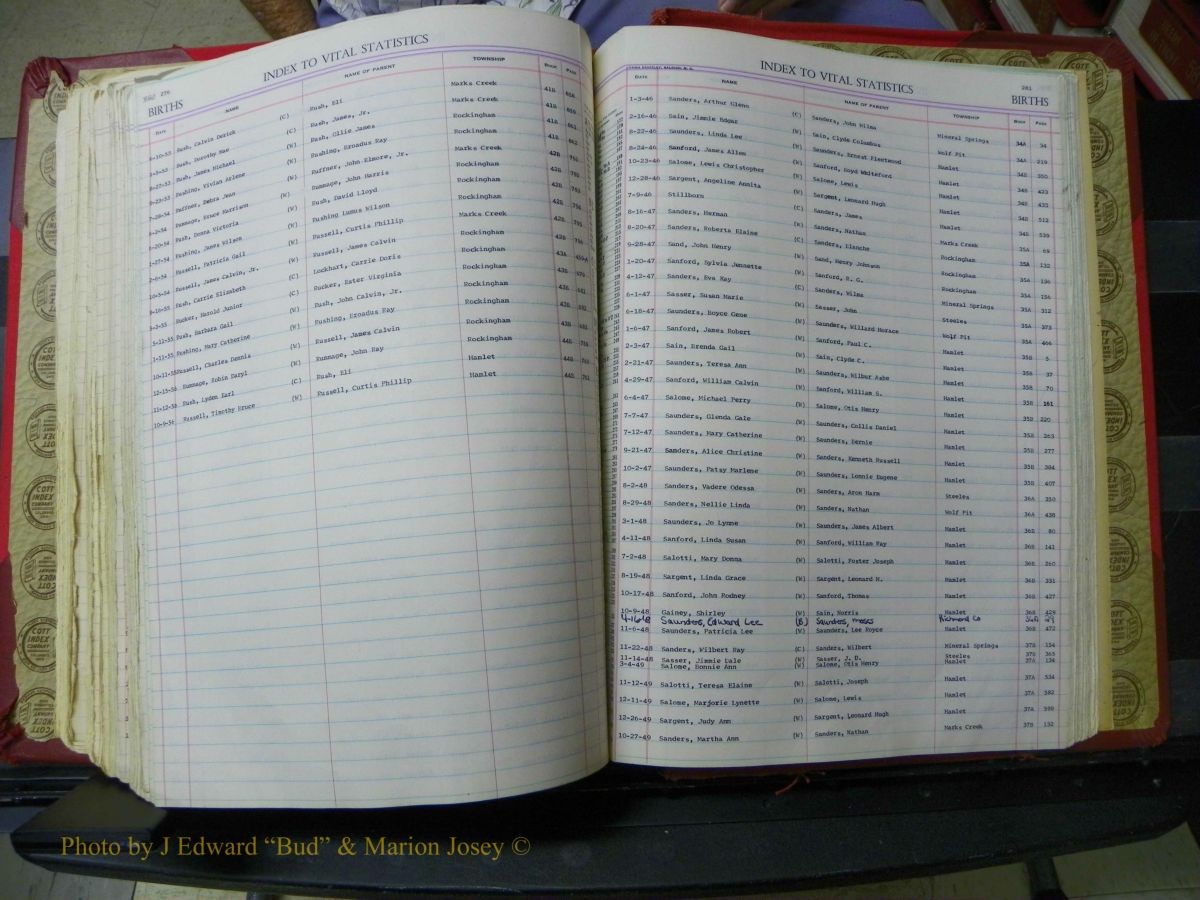 INDEX TO VITAL STATISTICS
276
BIRTHS
DATE NAME NAME OF PARENT TOWNSHIP BOOK PAGE
8-10-53 Rush, Calvin Derick (C) Rush, Eli Marks Creek 41B
Rush, Dorothy Mae (C) Rush, James, Jr. Marks Creek 41B
8-27-53 Rush, James Michael (W) Rush, Olin James Rockingham 41B
Rushing, Vivian Arlene (W) Rushing, Exoadus Ray Rockingham 41B
Ruffner, Debra Jean (W) Ruffner, John Elmore, Jr. Marks Creek 42B
Rummage, Bruce Harrison (W) Rummage, John Harris Rockingham 42B
Rush, Donna Victoria (W) Rush, David Lloyd Rockingham 42B
Rushing, James Wilson (W) Rushing Lumus Wilson Rockingham 42B
Russell, Patricia Gail (W) Russell, Curtis Phillip Marks Creek 42B
10-3-54 Russell, James Calvin, Jr. (W) Russell, James Calvin Rockingham 42B
Rush, Carrie Elizabeth (C) Lockhart, Carrie Doris Rockingham 43A
Rucker, Harold Junior (C) Rucker, Ester Virginia Rockingham 43B
Rush, Barbara Gail (W) Rush, John Calvin, Jr. Rockingham 43B
Rushing, Mary Catherine (W) Rushing, Exoadus Ray Rockingham 43B
10-11-55 Russell, Charles Dennis (W) Russell, James Calvin Rockingham 43B
12-15-56 Rummage, Robin Daryl (W) Rummage, John Ray Rockingham 44B
11-12-56 Rush, Lyden Earl (C) Rush, Eli Hamlet 44B
10-9-56 Russell, Timothy Bruce (W) Russell, Curtis Phillip Hamlet 44B
INDEX TO VITAL STATISTICS
281
BIRTHS
DATE NAME NAME OF PARENT TOWNSHIP BOOK PAGE
1-3-46 Sanders, Arthur Glenn (C) Sanders, John Wilma Mineral Springs 34A 34
2-16-46 Sain, Jimmie Edgar (W) Sain, Clyde Columbus Wolf Pit 34A 219
8-22-46 Saunders, Linda Lee (W) Saunders, Ernest Fleetwood Hamlet 34B 350
8-24-46 Sanford, James Allen (W) Sanford, Boyd Whiteford Hamlet 34B 423
10-23-46 Salome, Lewis Christopher (W) Salome, Lewis Hamlet 34B 433
12-28-46 Sargent, Angeline Annita (W) Sargent, Leonard Hugh Hamlet 34B 512
7-9-46 Stillborn (C) Sanders, James Hamlet 34B 539
8-16-47 Sanders, Herman Sanders, Nathan Marks Creek 35A 69
8-20-47 Sanders, Roberta Elaine (C) Sanders, Blanche Rockingham 35A 132
9-28-47 Sand, John Henry (W) Sand, Henry Johnson Rockingham 35A 136
1-20-47 Sanford, Sylvia Jennette (W) Sanford, R. G. Rockingham 35A 156
4-12-47 Sanders, Eva Kay (C) Sanders, Wilma Mineral Springs 35A 312
6-1-47 Sasser, Susan Marie (W) Sasser, John Steeles 35A 373
6-18-47 Saunders, Boyce Gene (W) Saunders, Willard Horace Wolf Pit 35A 466
1-6-47 Sanford, James Robert (W) Sanford, Paul C. Hamlet 35B 5
2-3-47 Sain, Brenda Gail (W) Sain, Clyde C. Hamlet 35B 37
2-21-47 Saunders, Teresa Ann (W) Saunders, Wilbur Ashe Hamlet 35B 70
4-29-47 Sanford, William Calvin (W) Sanford, William G. Hamlet 35B 161
6-4-47 Salome, Michael Perry (W) Salome, Otis Henry Hamlet 35B 220
7-7-47 Saunders, Glenda Gale (W) Saunders, Collis Daniel Hamlet 35B 263
7-12-47 Saunders, Mary Catherine (W) Saunders, Bernie Hamlet 35B 277
9-21-47 Sanders, Alice Christine (W) Sanders, Kenneth Russell Hamlet 35B 384
10-2-47 Saunders, Patsy Marlene (W) Saunders, Lonnie Eugene Hamlet 35B 407
8-2-48 Sanders, Vadere Odessa (W) Sanders, Aron Harm Steeles 36A 350
8-29-48 Sanders, Nellie Linda (W) Sanders, Nathan Wolf Pit 36A 438
3-1-48 Saunders, Jo Lynne (W) Saunders, James Albert Hamlet 36B 80
4-11-48 Sanford, Linda Susan (W) Sanford, William Ray Hamlet 36B 141
7-2-48 Salotti, Mary Donna (W) Salotti, Foster Joseph Hamlet 36B 260
8-19-48 Sargent, Linda Grace (W) Sargent, Leonard H. Hamlet 36B 331
10-17-48 Sanford, John Rodney (W) Sanford, Thomas Hamlet 36B 427
10-9-48 Gainey, Shirley (W) Sain, Norris Hamlet 36B 429
4-16-48 Saunders, Edward Lee (B) Saunders, Moses Richmond Co 36A 29
11-6-48 Saunders, Patricia Lee (W) Saunders, Lee Royce Hamlet 36B 472
11-22-48 Sanders, Wilbert Ray (C) Sanders, Wilbert Mineral Springs 37B 315
11-14-48 Sasser, Jimmie Dale (W) Sasser, J. D. Steeles 37B 365
3-4-49 Salome, Bonnie Ann (W) Salome, Otis Henry Hamlet 37A 134
11-12-49 Salotti, Teresa Elaine (W) Salotti, Joseph Hamlet 37A 534
12-11-49 Salome, Marjorie Lynette (W) Salome, Lewis Hamlet 37A 582
12-26-49 Sargent, Judy Ann (W) Sargent, Leonard Hugh Hamlet 37A 599
10-27-49 Sanders, Martha Ann (W) Sanders, Nathan Marks Creek 37B 132
COTT INDEX COMPANY
Photo by J Edward “Bud” & Marion Josey ©